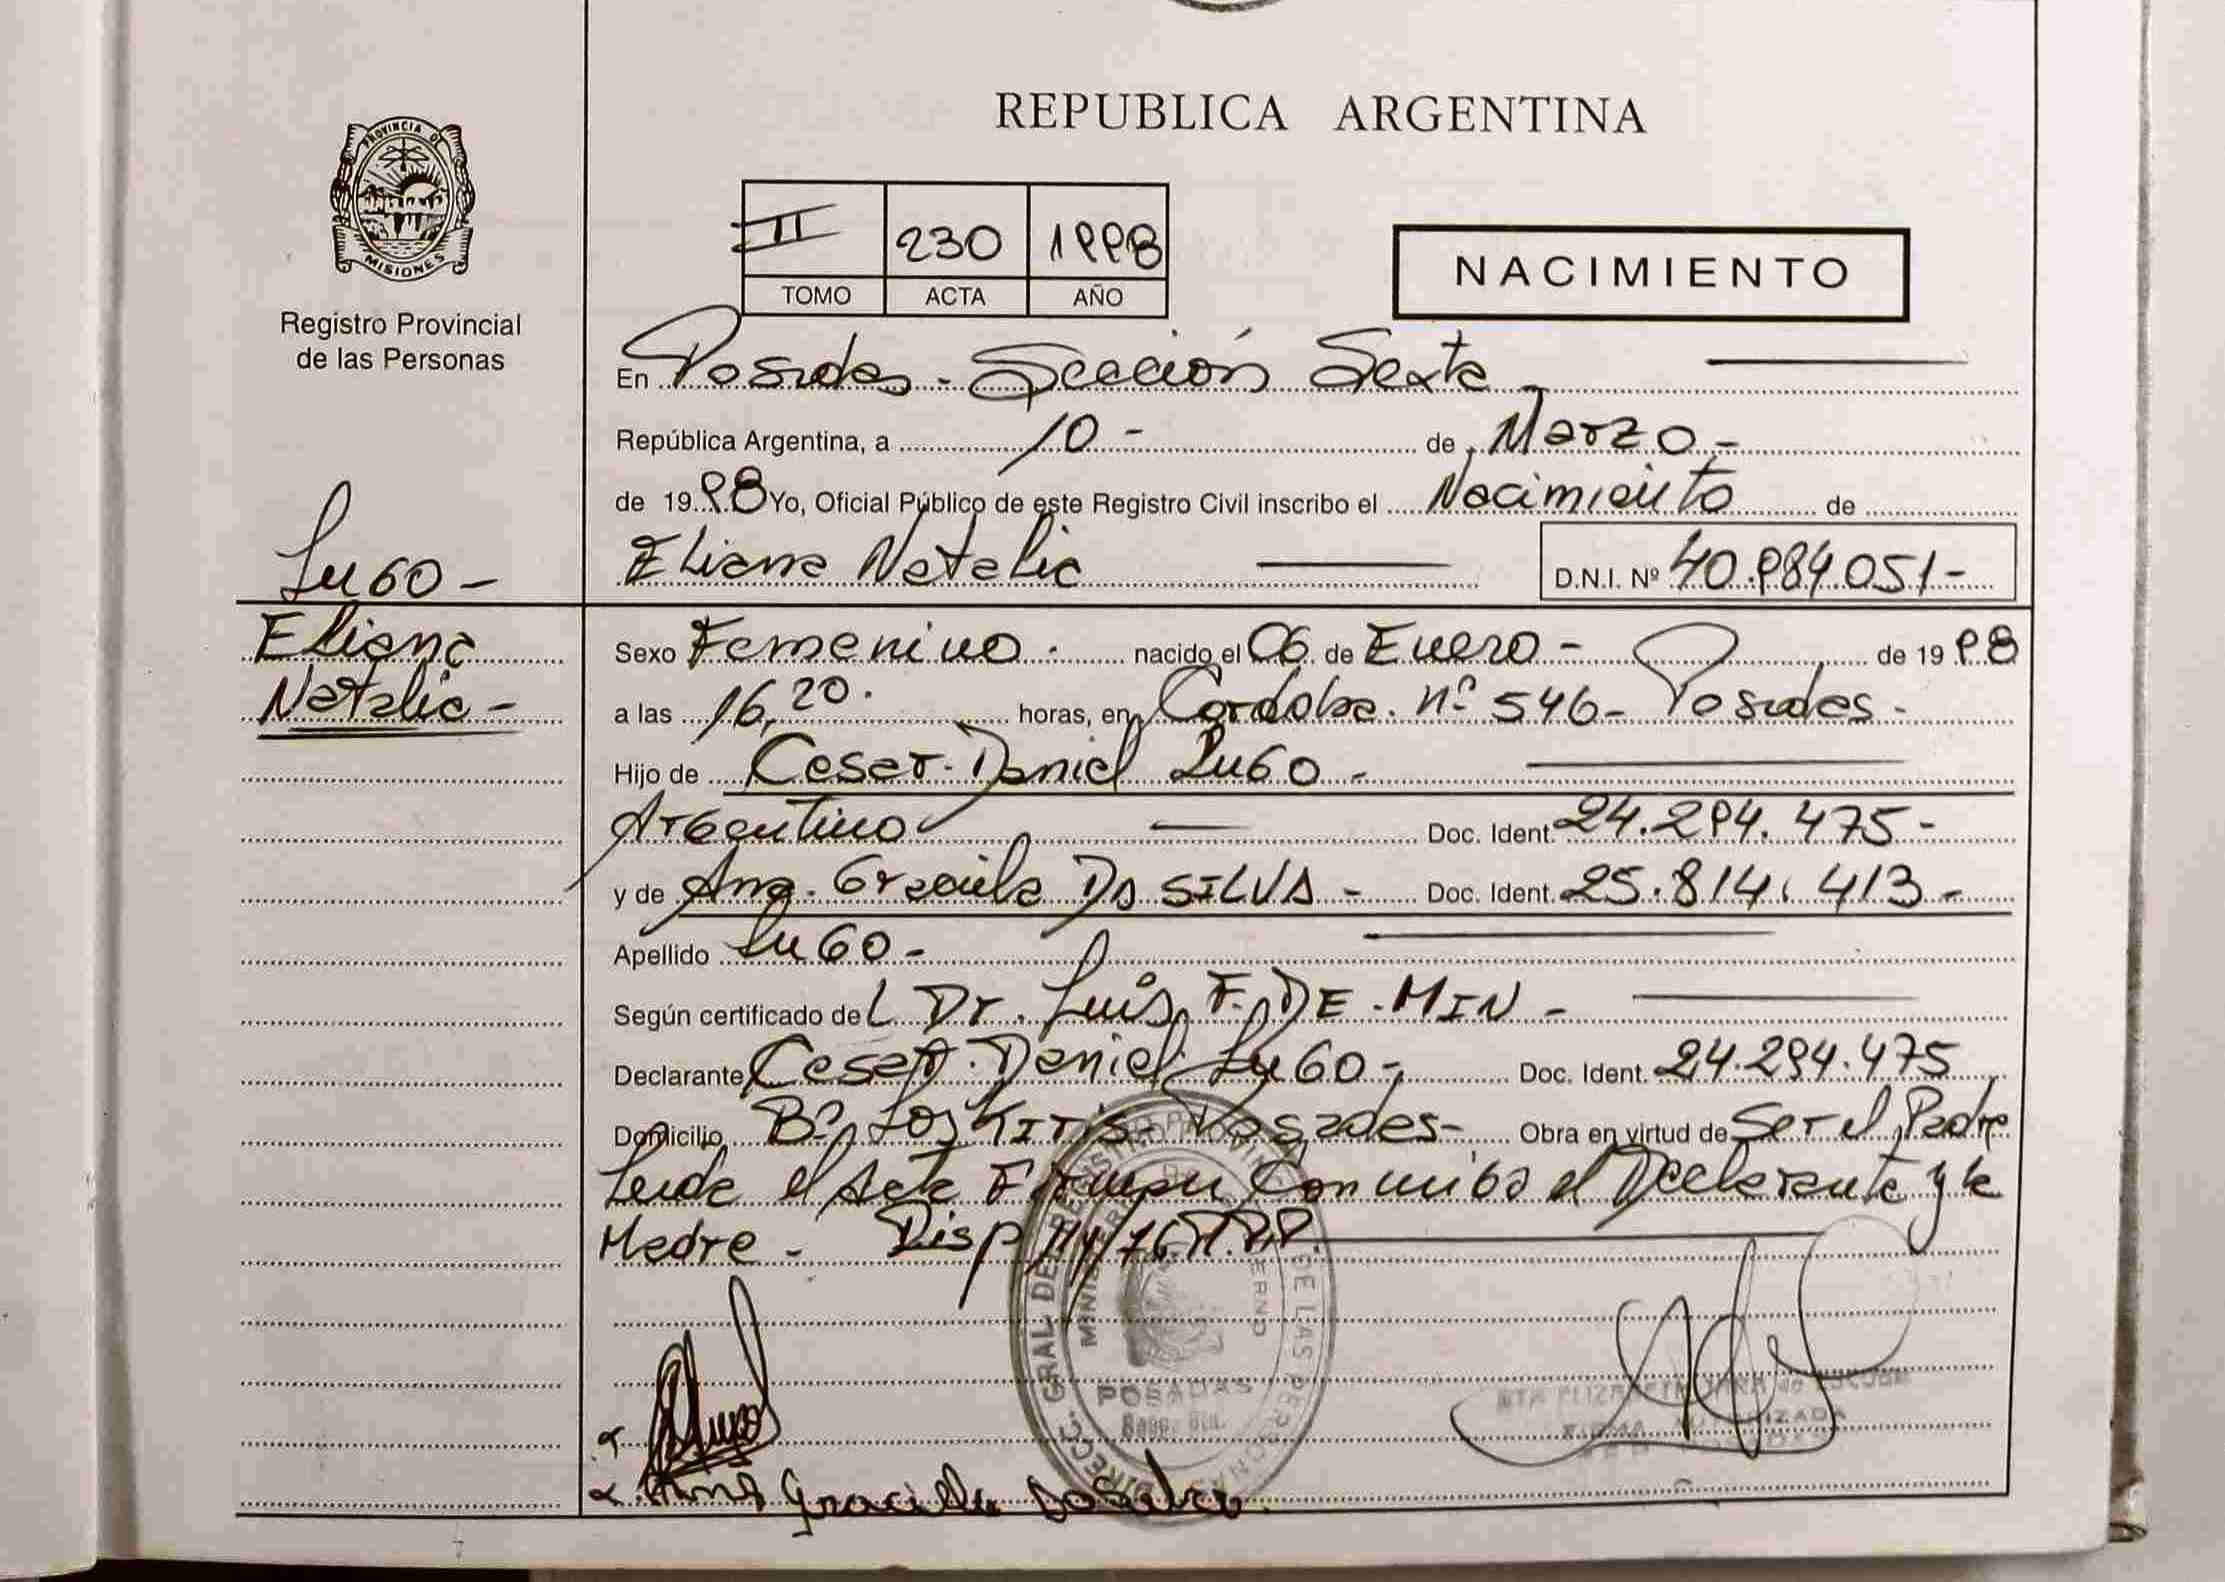 REPUBLICA ARGENTINA
PROVINCIA DE
MISIONES
Registro Provincial
de las Personas
II 230 1998
TOMO ACTA AÑO
NACIMIENTO
En Posadas - Sección Sexta
República Argentina, a 10 - de Marzo -
de 1998 Yo, Oficial Público de este Registro Civil inscribo el Nacimiento de
Eliana Natalia D.N.I. Nº 40.984.051-
Lugo -
Eliana
Natalia -
Sexo Femenino. nacido el 06 de Enero - de 1998
a las 16,20. horas, en Cordoba. nº 546 - Posadas -
Hijo de Cesar Daniel Lugo -
Argentino Doc. Ident. 24.294.475 -
y de Ana. Graciela Da SILVA - Doc. Ident. 25.814.413 -
Apellido Lugo -
Según certificado del Dr. Luis F. DE MIN -
Declarante Cesar Daniel Lugo - Doc. Ident. 24.294.475
Domicilio Bº Los Kiris Posadas - Obra en virtud de Ser el Padre
Leida el Acta Firman Conmigo el Declarante y la
Madre - Disp
Ana Graciela Da Silva
DIRECC. GRAL DEL REGISTRO PROVINCIAL DE LAS PERSONAS
POSADAS